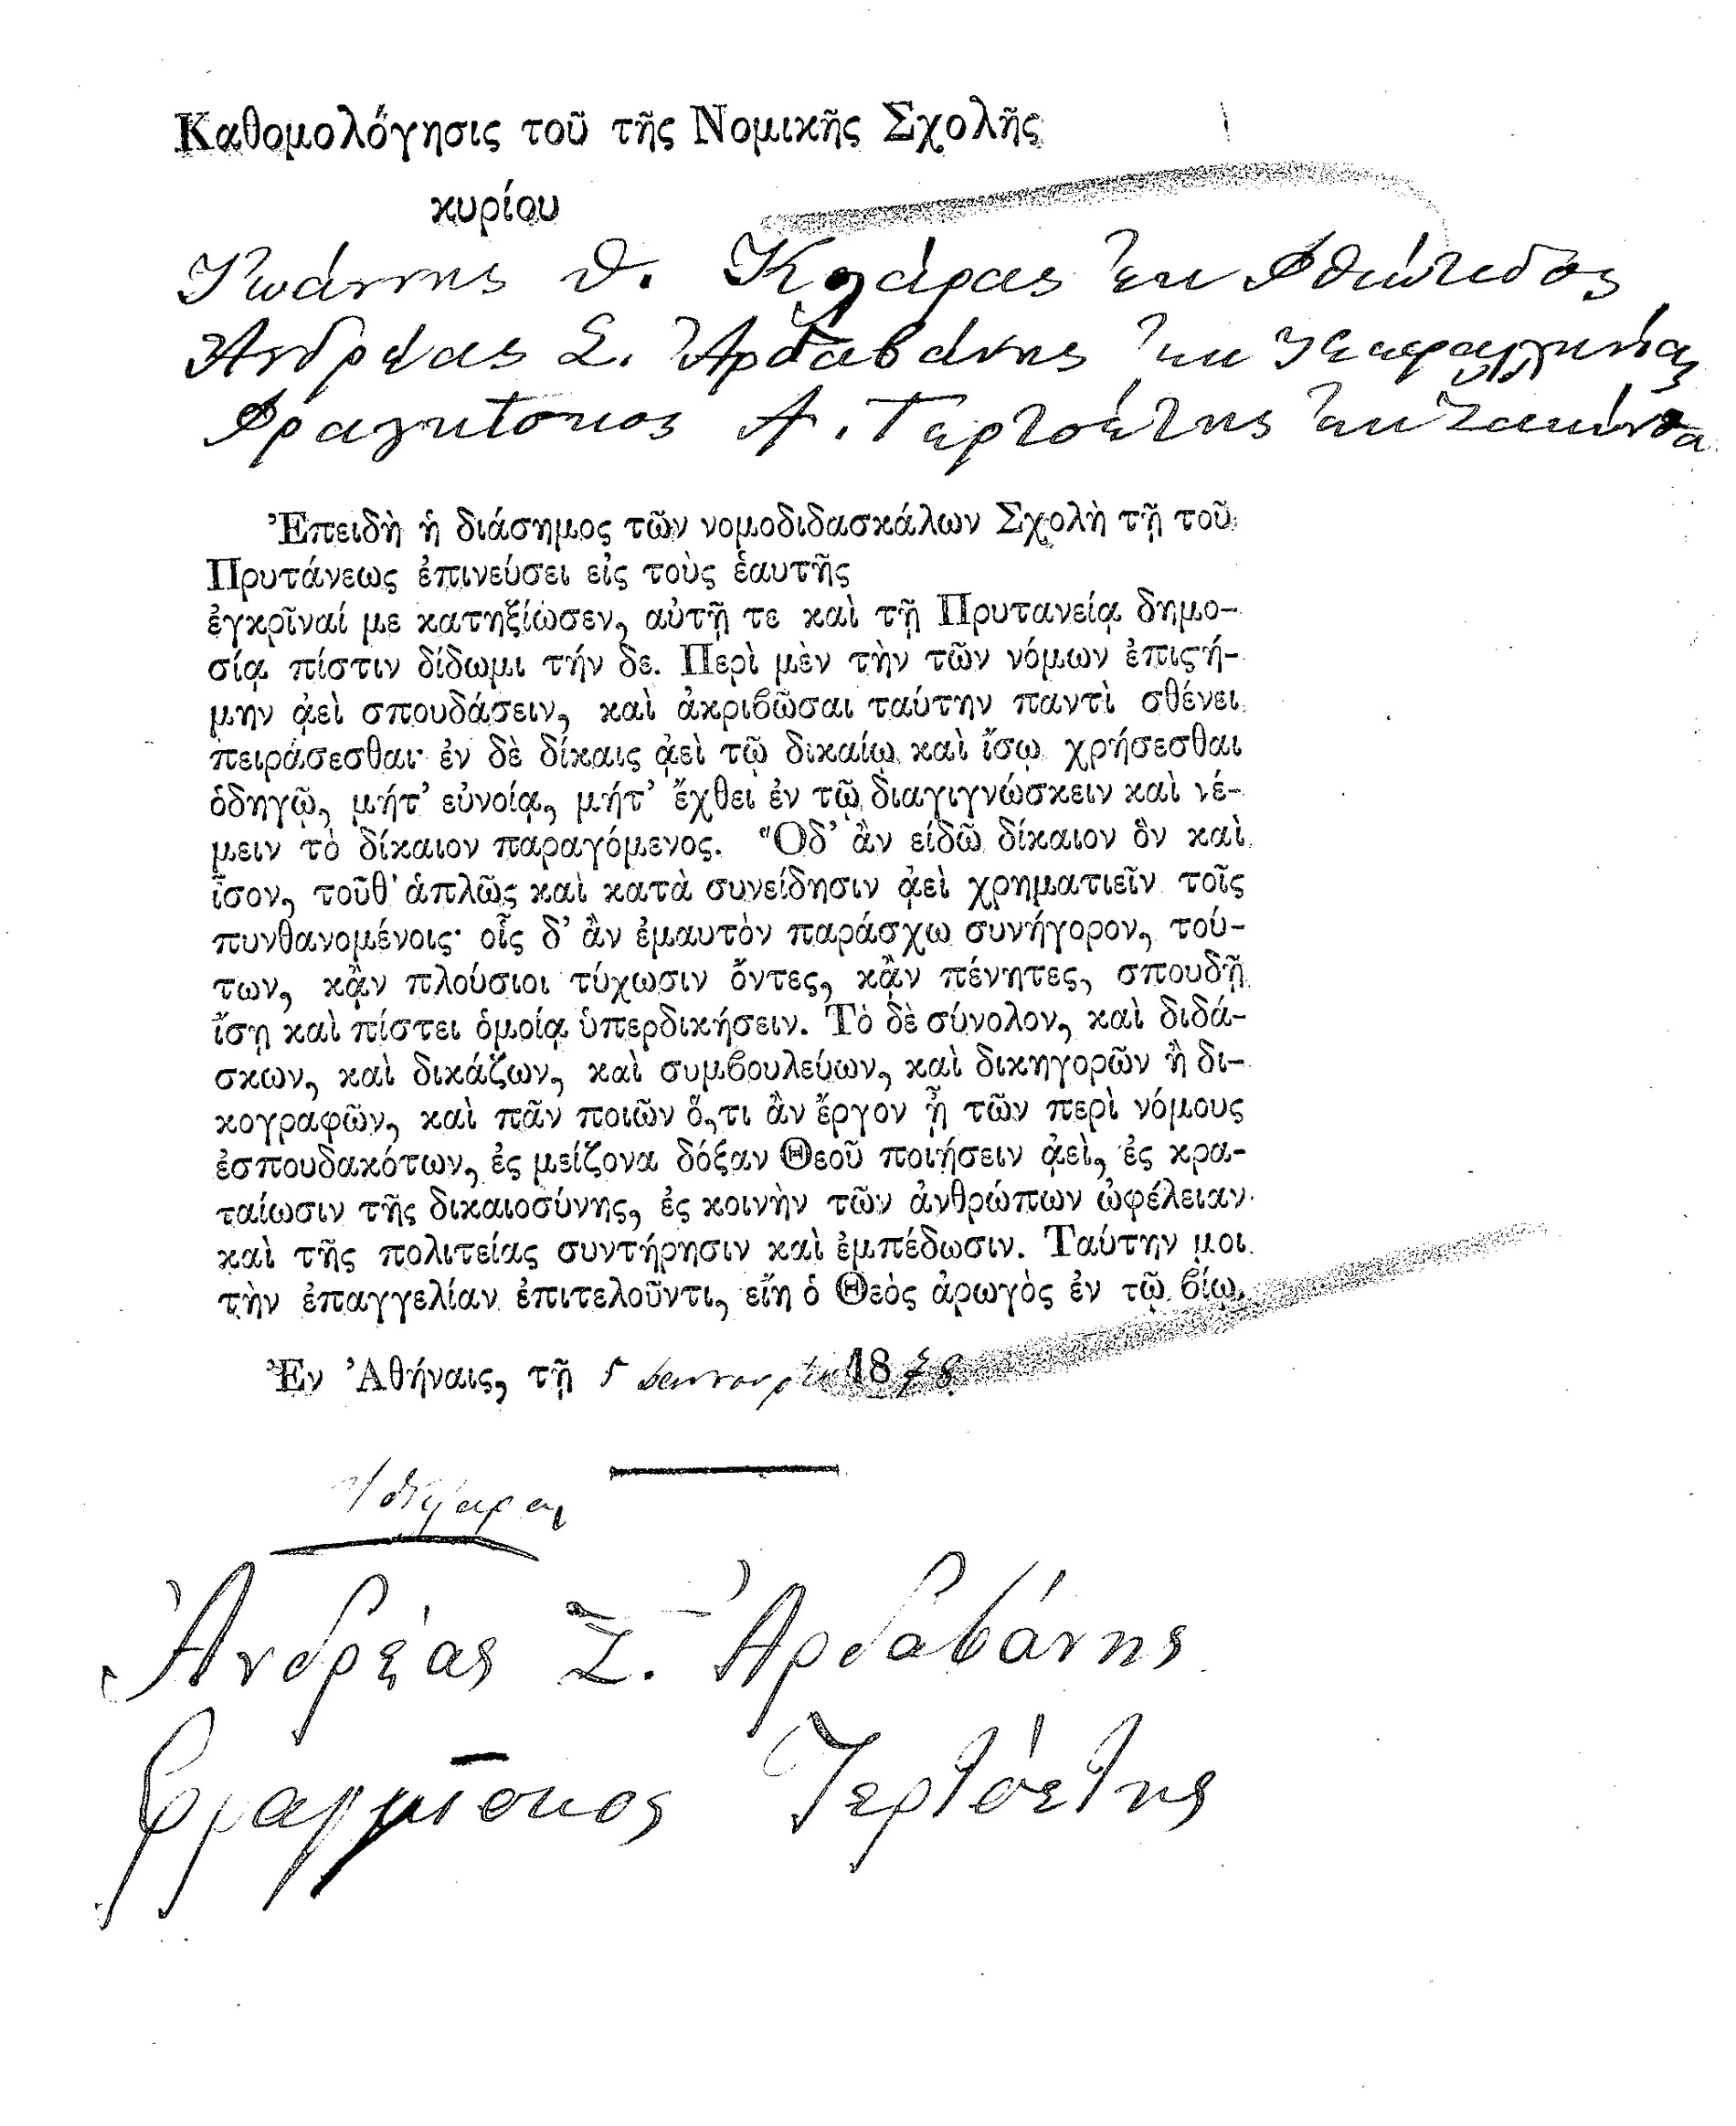 Καθομολόγησις τοῦ τῆς Νομικῆς Σχολῆς
κυρίου
Ἰωάννης Θ. Κλάρας ἐκ Φθιώτιδος
Ἀνδρέας Σ. Ἀρδαβάνης ἐκ Κεφαλληνίας
Φραγκῖσκος Α. Τερτσέτης ἐκ Ζακύνθου
Ἐπειδὴ ἡ διάσημος τῶν νομοδιδασκάλων Σχολὴ τῇ τοῦ
Πρυτάνεως ἐπινεύσει εἰς τοὺς ἑαυτῆς
ἐγκρῖναί με κατηξίωσεν, αὐτῇ τε καὶ τῇ Πρυτανείᾳ δημο-
σίᾳ πίστιν δίδωμι τήν δε. Περὶ μὲν τὴν τῶν νόμων ἐπιϛή-
μην ᾀεὶ σπουδάσειν, καὶ ἀκριϐῶσαι ταύτην παντὶ σθένει
πειράσεσθαι· ἐν δὲ δίκαις ᾀεὶ τῷ δικαίῳ καὶ ἴσῳ χρήσεσθαι
ὁδηγῷ, μήτ' εὐνοίᾳ, μήτ' ἔχθει ἐν τῷ διαγιγνώσκειν καὶ νέ-
μειν τὸ δίκαιον παραγόμενος. Ὅδ' ἂν εἰδῶ δίκαιον ὂν καὶ
ἶσον, τοῦθ' ἁπλῶς καὶ κατὰ συνείδησιν ᾀεὶ χρηματιεῖν τοῖς
πυνθανομένοις· οἷς δ' ἂν ἐμαυτὸν παράσχω συνήγορον, τού-
των, κᾂν πλούσιοι τύχωσιν ὄντες, κᾂν πένητες, σπουδῇ
ἴσῃ καὶ πίστει ὁμοίᾳ ὑπερδικήσειν. Τὸ δὲ σύνολον, καὶ διδά-
σκων, καὶ δικάζων, καὶ συμϐουλεύων, καὶ δικηγορῶν ἢ δι-
κογραφῶν, καὶ πᾶν ποιῶν ὅ,τι ἂν ἔργον ᾖ τῶν περὶ νόμους
ἐσπουδακότων, ἐς μείζονα δόξαν Θεοῦ ποιήσειν ᾀεὶ, ἐς κρα-
ταίωσιν τῆς δικαιοσύνης, ἐς κοινὴν τῶν ἀνθρώπων ὠφέλειαν
καὶ τῆς πολιτείας συντήρησιν καὶ ἐμπέδωσιν. Ταύτην μοι
τὴν ἐπαγγελίαν ἐπιτελοῦντι, εἴη ὁ Θεὸς ἀρωγὸς ἐν τῷ ϐίῳ.
Ἐν Ἀθήναις, τῇ 5 Ιανουαρίου 1878
Ἀνδρέας Σ. Ἀρδαβάνης
Φραγκῖσκος Τερτσέτης